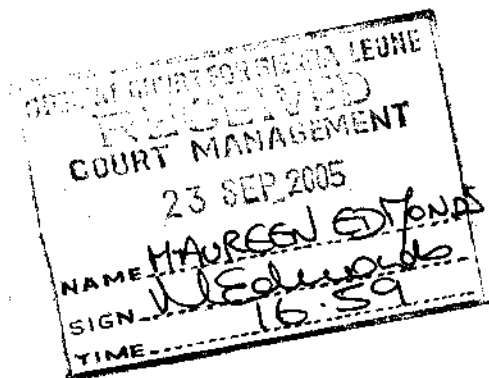 SPECIAL COURT FOR SIERRA LEONE
RECEIVED
COURT MANAGEMENT
23 SEP 2005
NAME MAUREEN EDMONDS
SIGN
TIME 16.59